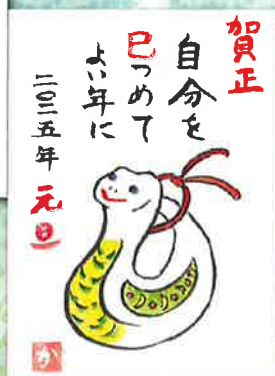 賀正
自分を
巳つめて
よい年に
二〇二五年 元旦
か